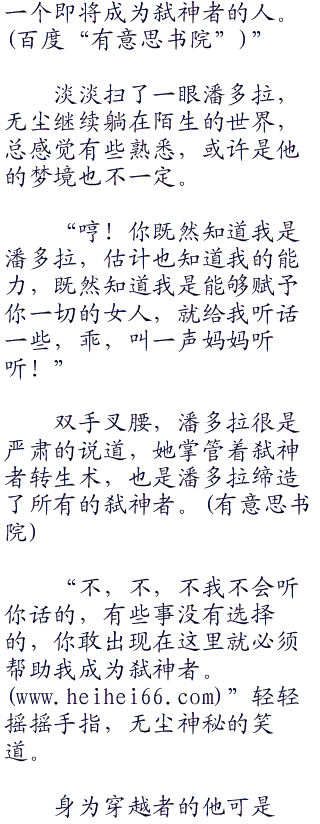 一个即将成为弑神者的人。
(百度“有意思书院”)”
淡淡扫了一眼潘多拉，
无尘继续躺在陌生的世界，
总感觉有些熟悉，或许是他
的梦境也不一定。
“哼！你既然知道我是
潘多拉，估计也知道我的能
力，既然知道我是能够赋予
你一切的女人，就给我听话
一些，乖，叫一声妈妈听
听！”
双手叉腰，潘多拉很是
严肃的说道，她掌管着弑神
者转生术，也是潘多拉缔造
了所有的弑神者。(有意思书
院)
“不，不，不我不会听
你话的，有些事没有选择
的，你敢出现在这里就必须
帮助我成为弑神者。
(www.heihei66.com)”轻轻
摇摇手指，无尘神秘的笑
道。
身为穿越者的他可是